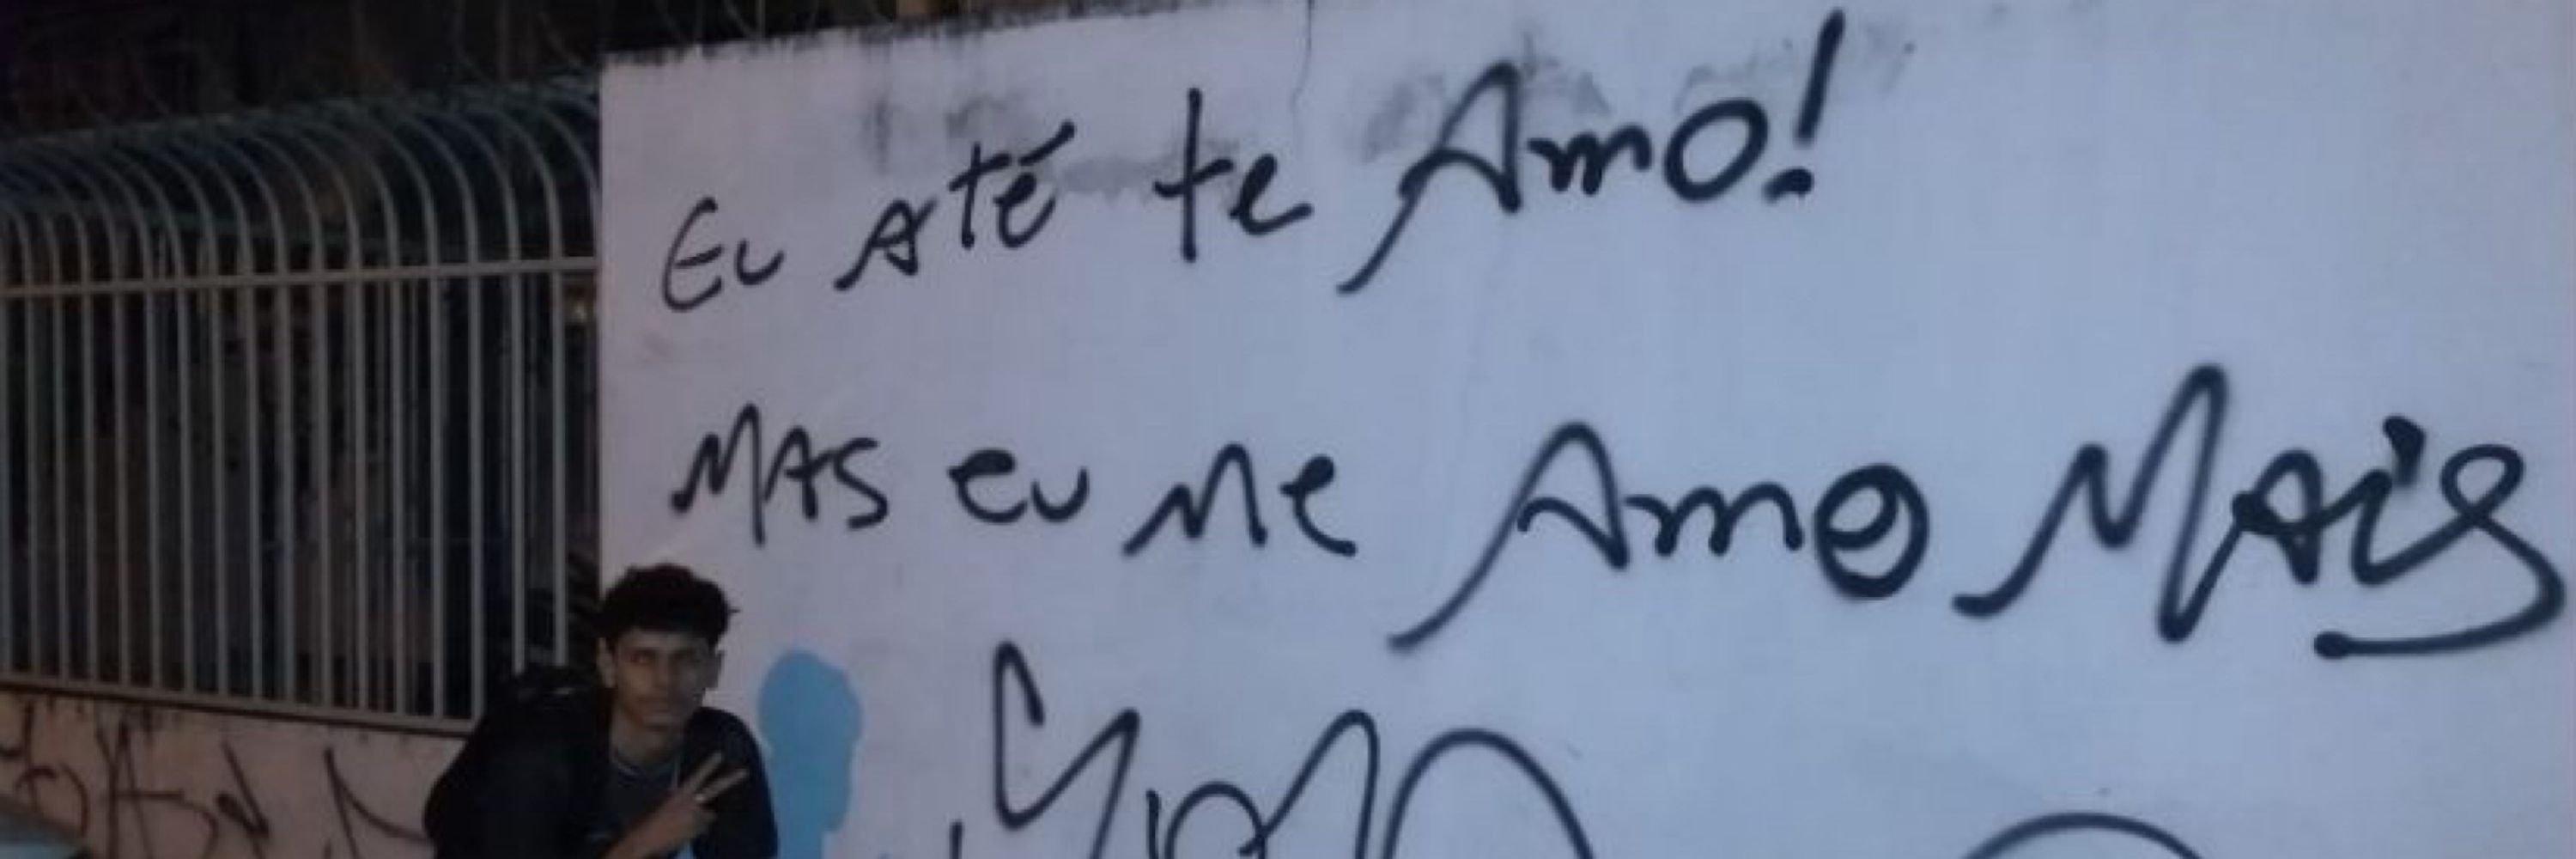 Eu Até te Amo!
MAS eu Me Amo MAis